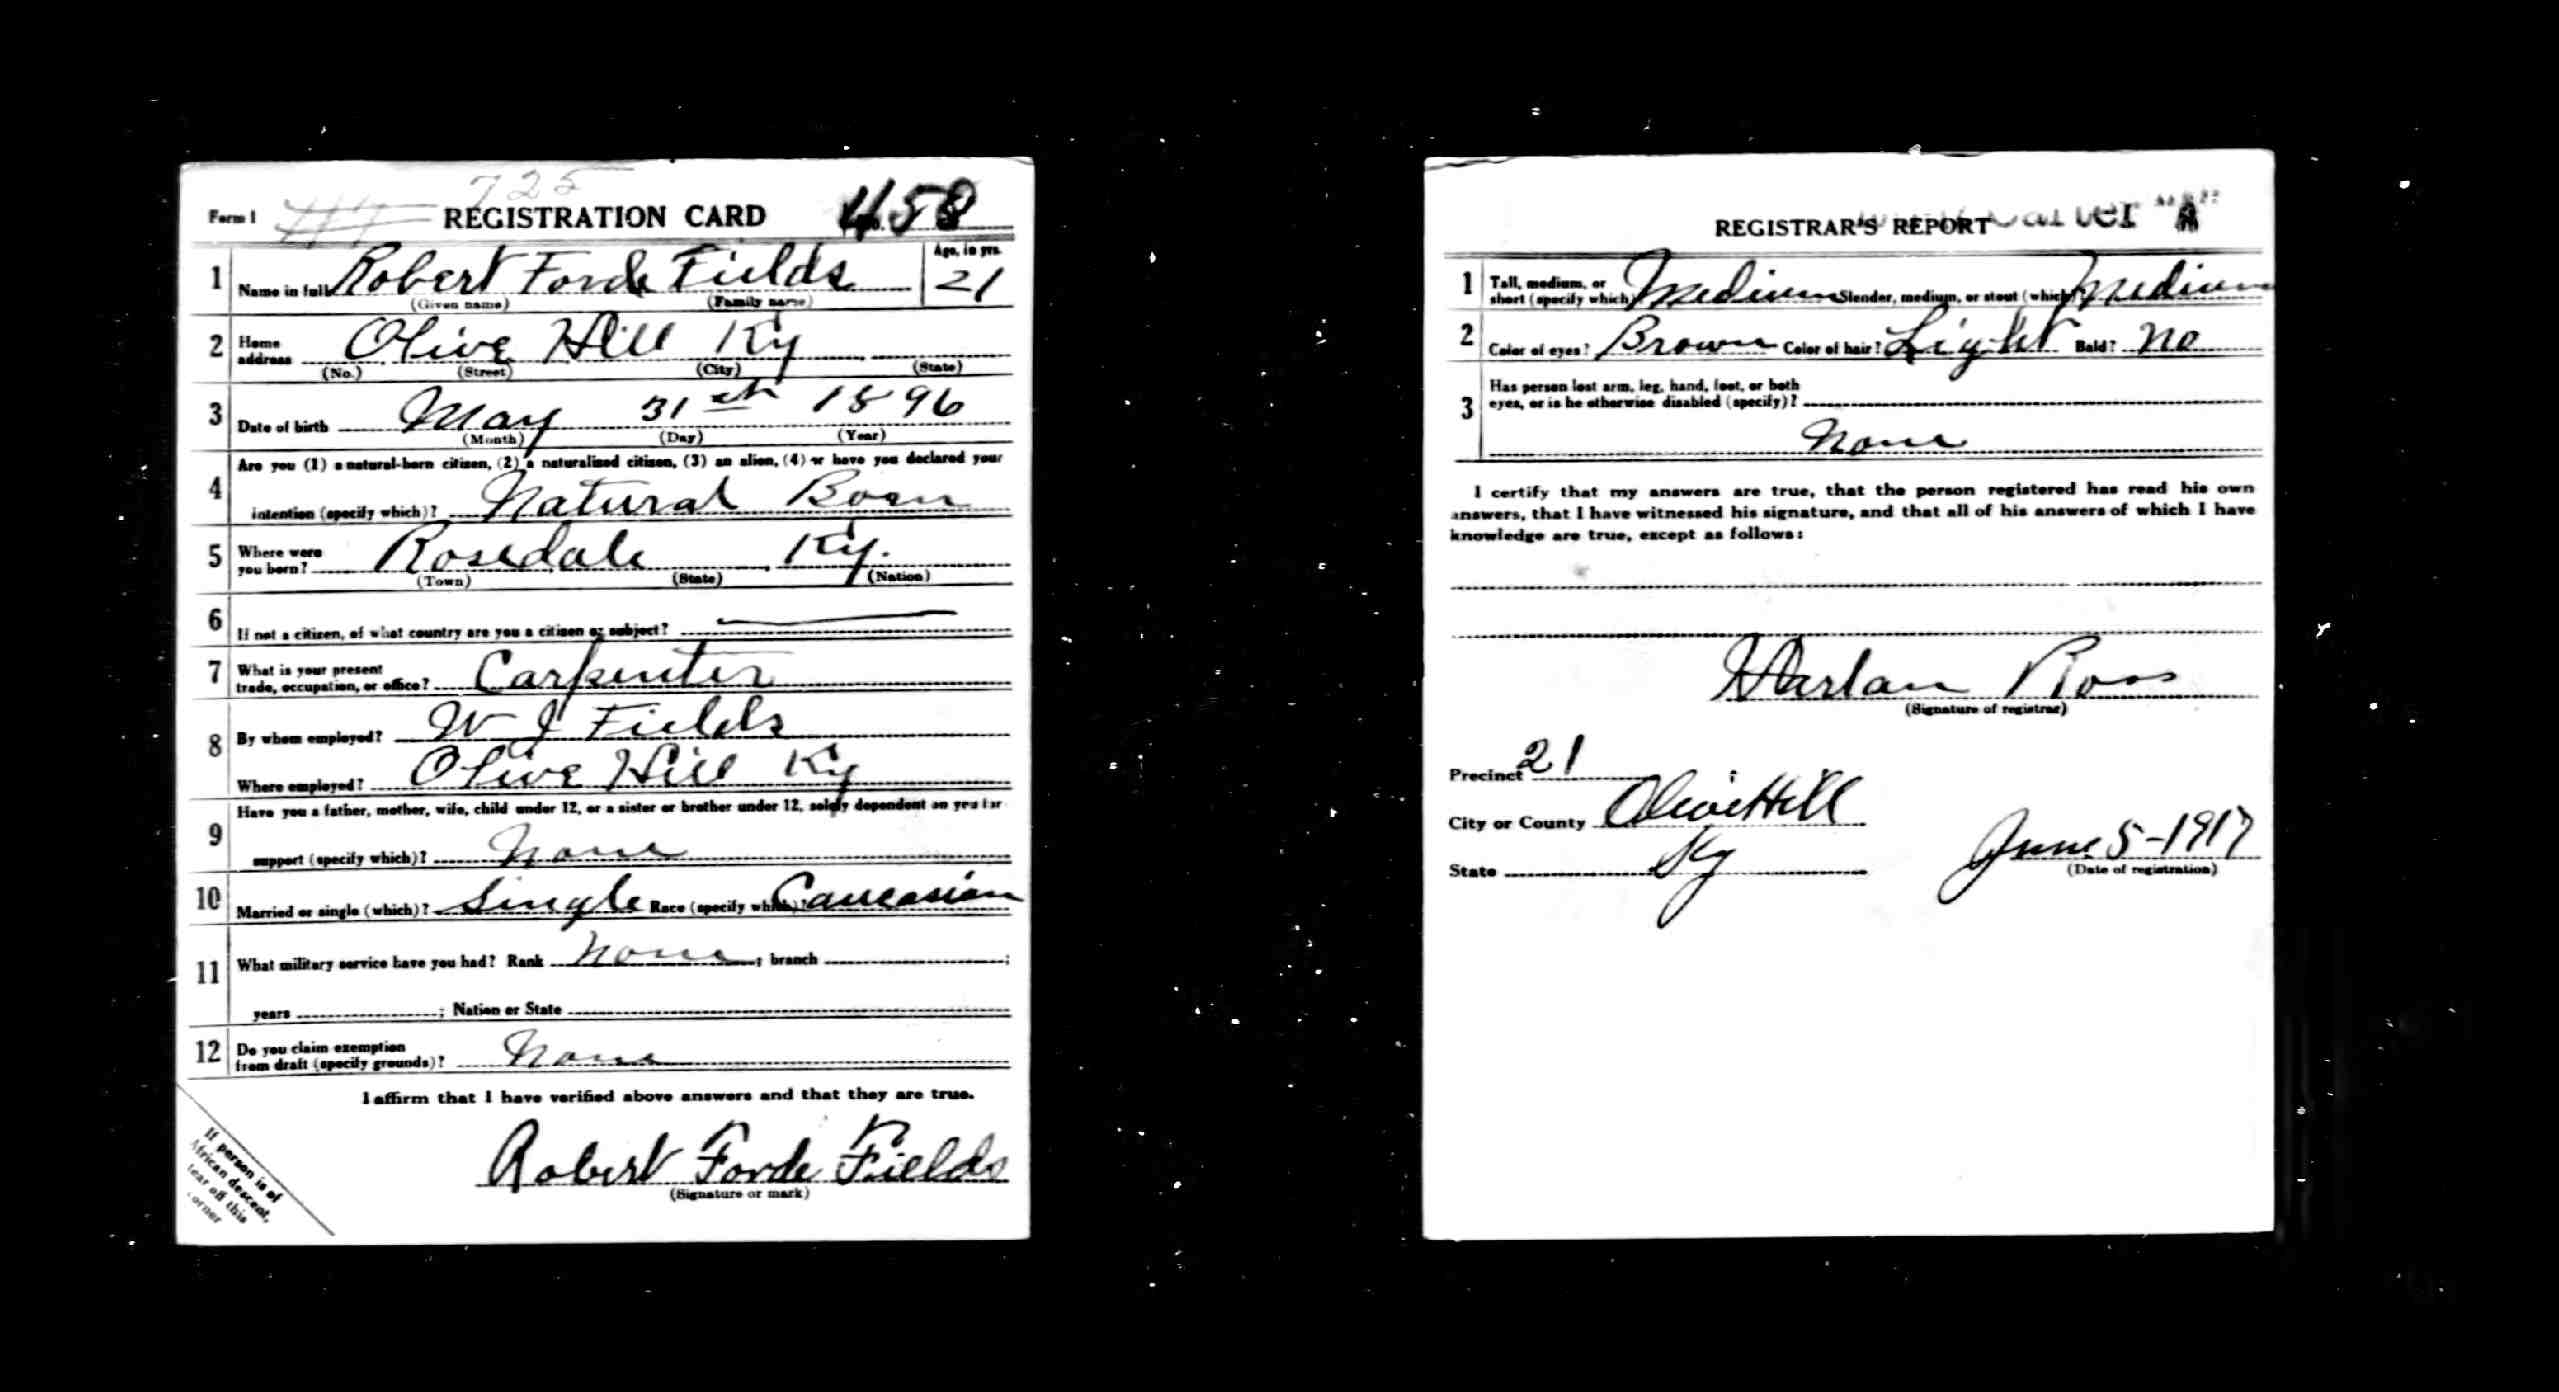 725
Form 1 REGISTRATION CARD No. 458
1 Name in full Robert Forde Fields Age, in yrs. 21
(Given name) (Family name)
2 Home address Olive Hill Ky
(No.) (Street) (City) (State)
3 Date of birth May 31st 1896
(Month) (Day) (Year)
4 Are you (1) a natural-born citizen, (2) a naturalized citizen, (3) an alien, (4) or have you declared your
intention (specify which)? Natural Born
5 Where were you born? Rosedale Ky.
(Town) (State) (Nation)
6 If not a citizen, of what country are you a citizen or subject?
7 What is your present trade, occupation, or office? Carpenter
8 By whom employed? W J Fields
Where employed? Olive Hill Ky
9 Have you a father, mother, wife, child under 12, or a sister or brother under 12, solely dependent on you for
support (specify which)? None
10 Married or single (which)? Single Race (specify which)? Caucasian
11 What military service have you had? Rank None ; branch ;
years ; Nation or State
12 Do you claim exemption from draft (specify grounds)? None
I affirm that I have verified above answers and that they are true.
Robert Forde Fields
(Signature or mark)
If person is of
African descent,
tear off this
corner
REGISTRAR'S REPORT
1 Tall, medium, or short (specify which)? Medium Slender, medium, or stout (which)? Medium
2 Color of eyes? Brown Color of hair? Light Bald? No
3 Has person lost arm, leg, hand, foot, or both
eyes, or is he otherwise disabled (specify)?
None
I certify that my answers are true, that the person registered has read his own
answers, that I have witnessed his signature, and that all of his answers of which I have
knowledge are true, except as follows:
Harlan Ross
(Signature of registrar)
Precinct 21
City or County Olive Hill
State Ky June 5-1917
(Date of registration)